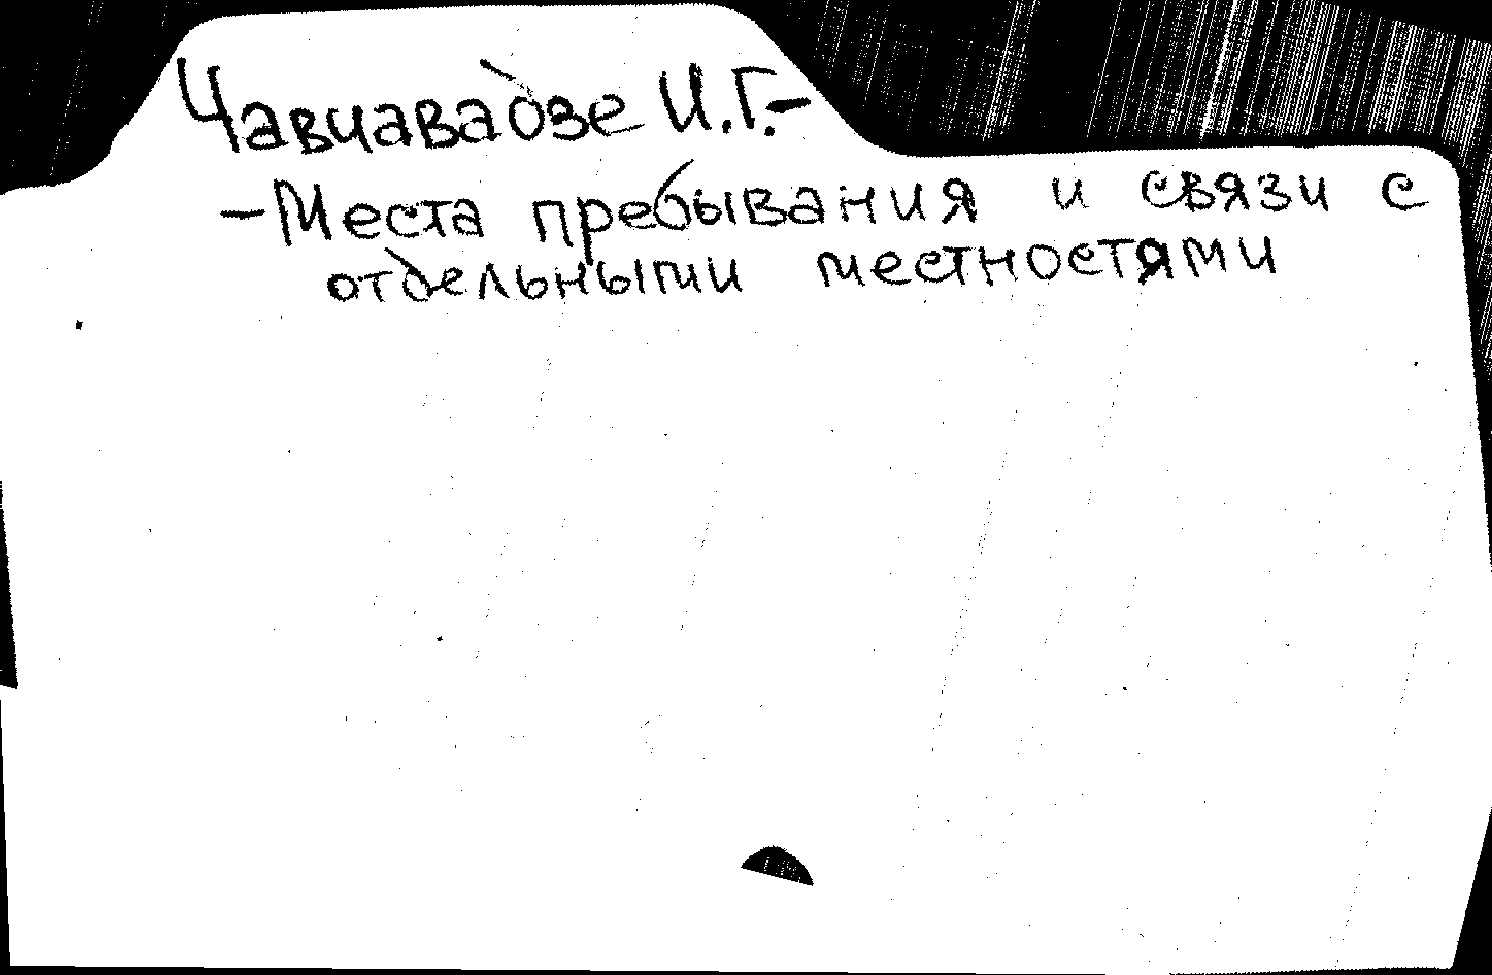 Чавчавадзе И.Г.–
–Места пребывания и связи с
отдельными местностями